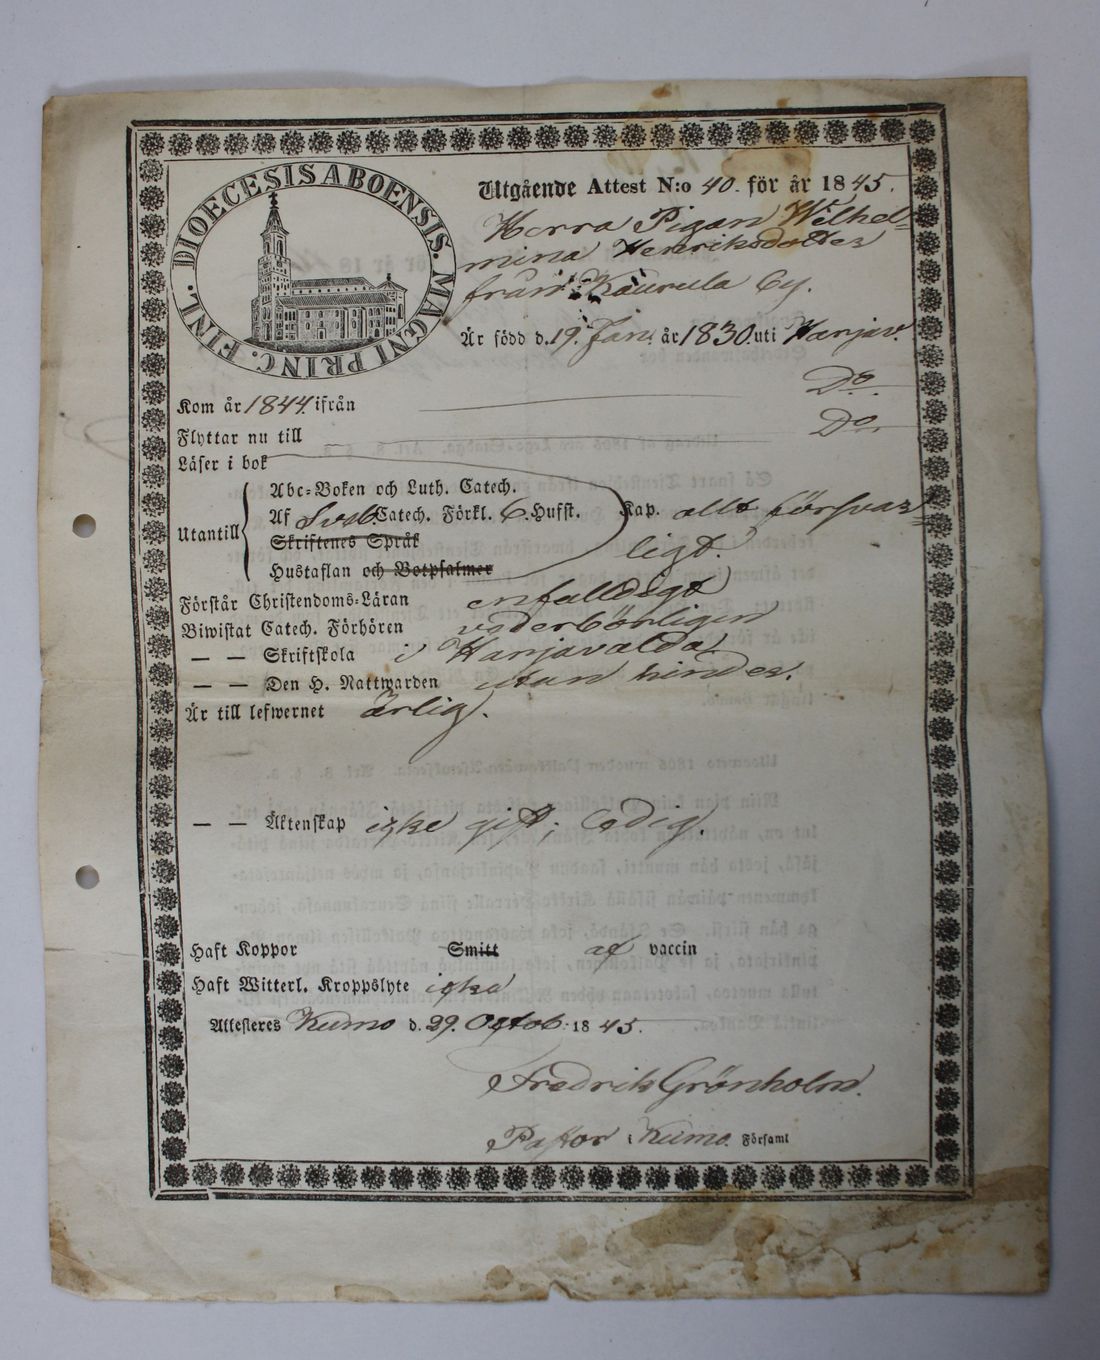 DIOECESIS ABOENSIS. MAGNI PRINC. FINL.
Utgående Attest N:o 40. för år 1845.
Pigan Wilhel-
mina Henriksdotter
från Kaurula by.
Är född d. 19. Jan. år 1830. uti Harjav.
Kom år 1844. ifrån D:o.
Flyttar nu till D:o.
Läser i bok
Abc-Boken och Luth. Catech.
Utantill Af Sveb. Catech. Förkl. 6. Husst. Kap. allt försvar-
Skriftenes Språk ligt.
Hustaflan och Botpsalmer
Förstår Christendoms-Läran enfalldigt
Biwistat Catech. Förhören vederbörligen
— — Skriftskola i Harjavalda
— — Den H. Nattwarden utan hinder.
Är till lefwernet ärlig.
— — Äktenskap icke gift; ledig.
Haft Koppor Smitt af vaccin
Haft Witterl. Kroppslyte icke
Attesteres Kumo d. 29. Octob. 1845.
Fredrik Grönholm.
Pastor i Kumo Församl